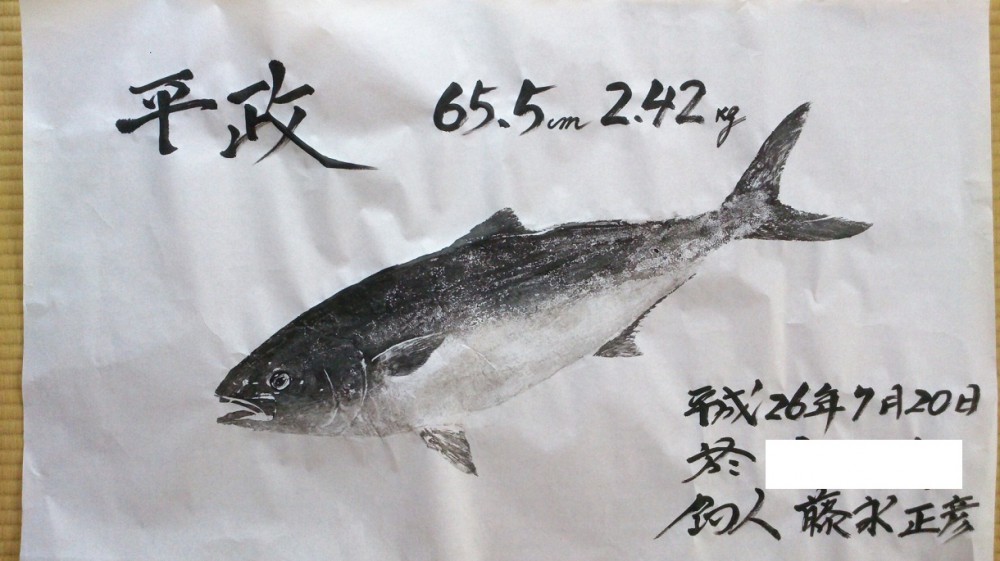 平政 65.5cm 2.42kg
平成26年7月20日
於
釣人 藤永正彦